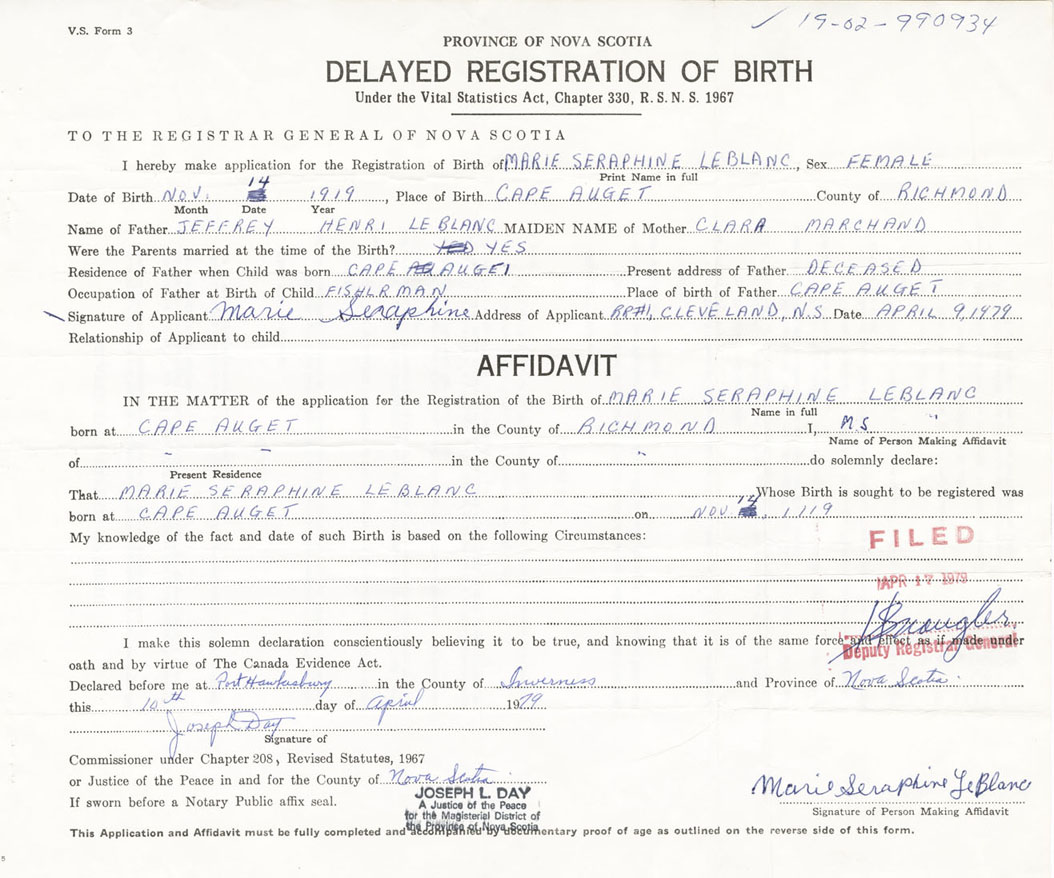 V.S. Form 3
✓ 19-02-990934
PROVINCE OF NOVA SCOTIA
DELAYED REGISTRATION OF BIRTH
Under the Vital Statistics Act, Chapter 330, R.S.N.S. 1967
TO THE REGISTRAR GENERAL OF NOVA SCOTIA
I hereby make application for the Registration of Birth of MARIE SERAPHINE LEBLANC, Sex FEMALE
Print Name in full
Date of Birth NOV. 14 1919, Place of Birth CAPE AUGET County of RICHMOND
Month Date Year
Name of Father JEFFREY HENRI LEBLANC MAIDEN NAME of Mother CLARA MARCHAND
Were the Parents married at the time of the Birth? YES
Residence of Father when Child was born CAPE AUGET Present address of Father DECEASED
Occupation of Father at Birth of Child FISHERMAN Place of birth of Father CAPE AUGET
Signature of Applicant Marie Seraphine Address of Applicant RR#1, CLEVELAND, N.S. Date APRIL 9, 1979
Relationship of Applicant to child
AFFIDAVIT
IN THE MATTER of the application for the Registration of the Birth of MARIE SERAPHINE LEBLANC
Name in full
born at CAPE AUGET in the County of RICHMOND I, MS
Name of Person Making Affidavit
of in the County of do solemnly declare:
Present Residence
That MARIE SERAPHINE LEBLANC Whose Birth is sought to be registered was
born at CAPE AUGET on NOV 14, 1919
My knowledge of the fact and date of such Birth is based on the following Circumstances:
FILED
APR 17 1979
I make this solemn declaration conscientiously believing it to be true, and knowing that it is of the same force and effect as if made under
Deputy Registrar General
oath and by virtue of The Canada Evidence Act.
Declared before me at Port Hawkesbury in the County of Inverness and Province of Nova Scotia.
this 10th day of April 1979
Joseph Day
Signature of
Commissioner under Chapter 208, Revised Statutes, 1967
or Justice of the Peace in and for the County of Nova Scotia.
If sworn before a Notary Public affix seal.
JOSEPH L. DAY
A Justice of the Peace
for the Magisterial District of
the Province of Nova Scotia
Marie Seraphine LeBlanc
Signature of Person Making Affidavit
This Application and Affidavit must be fully completed and accompanied by documentary proof of age as outlined on the reverse side of this form.